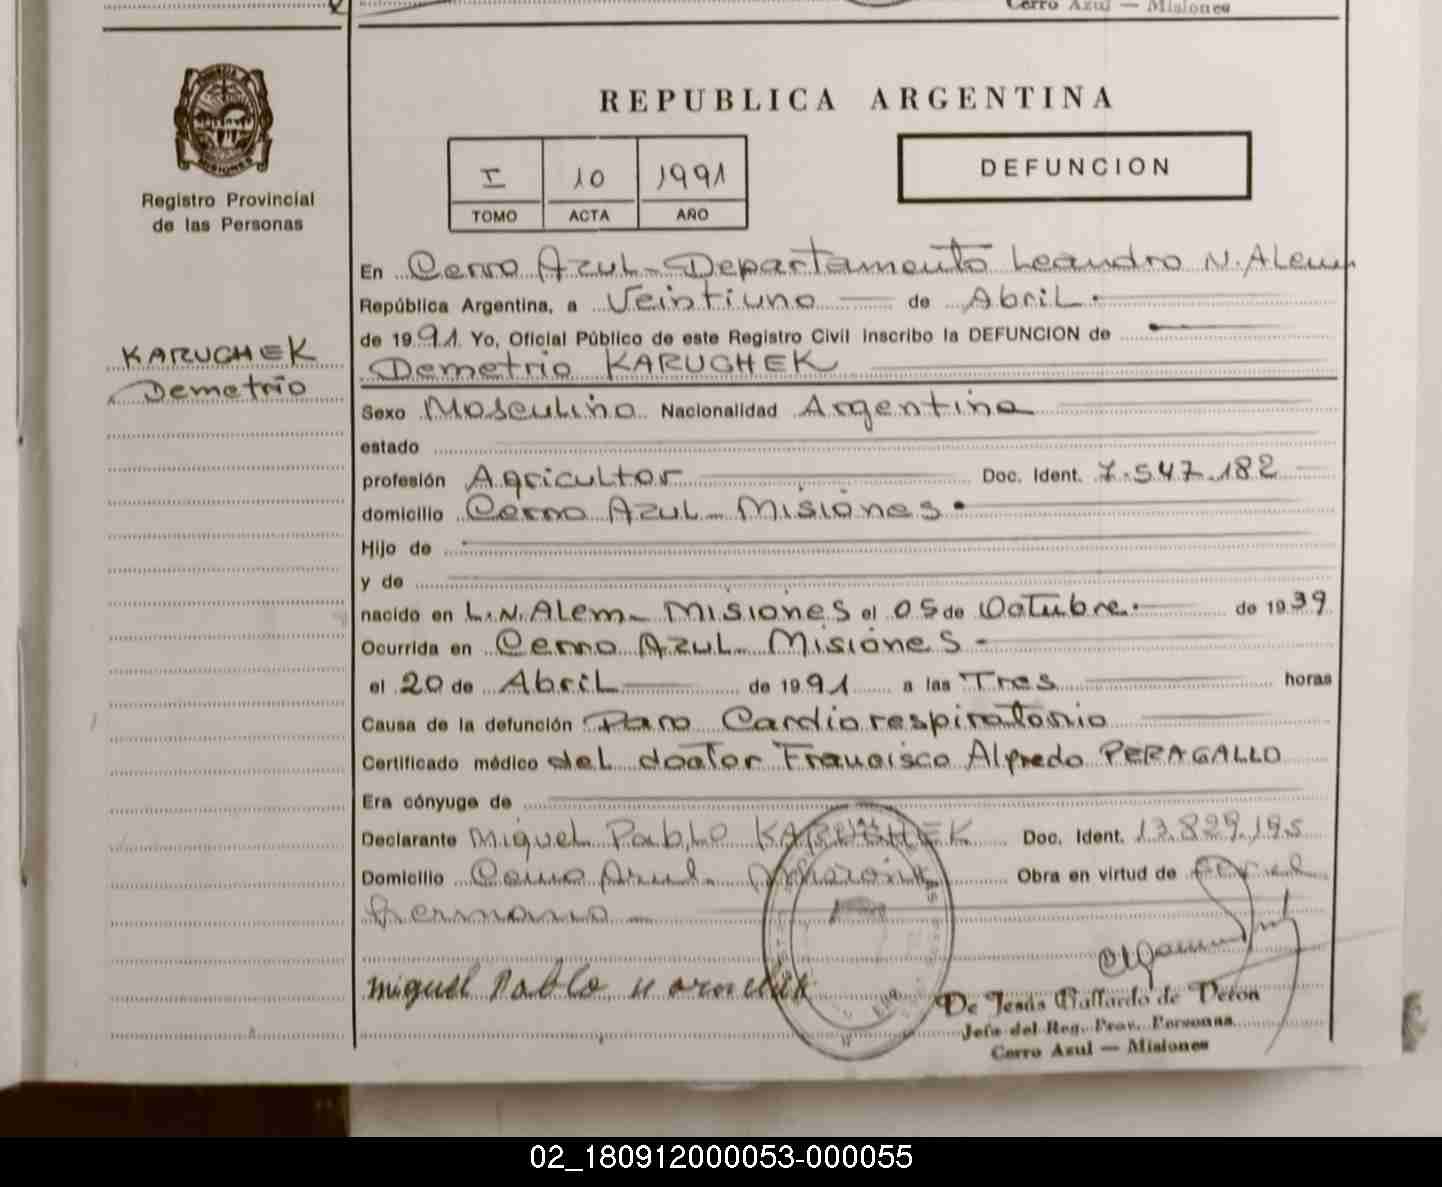 Cerro Azul — Misiones
REPUBLICA ARGENTINA
Registro Provincial
de las Personas
I 10 1991
TOMO ACTA AÑO
DEFUNCION
KARUCHEK
Demetrio
En Cerro Azul - Departamento Leandro N. Alem
República Argentina, a Veintiuno de Abril.
de 1991. Yo, Oficial Público de este Registro Civil inscribo la DEFUNCION de
Demetrio KARUCHEK
Sexo Masculino Nacionalidad Argentina
estado
profesión Agricultor Doc. Ident. 7.547.182
domicilio Cerro Azul - Misiones.
Hijo de
y de
nacido en L.N. Alem - Misiones el 05 de Octubre. de 1939
Ocurrida en Cerro Azul - Misiones -
el 20 de Abril de 1991 a las Tres horas
Causa de la defunción Paro Cardiorespiratorio
Certificado médico del doctor Francisco Alfredo PERAGALLO
Era cónyuge de
Declarante Miguel Pablo KARUCHEK Doc. Ident. 13.829.195
Domicilio Cerro Azul - Misiones Obra en virtud de
hermano
miguel Pablo
De Jesús Gallardo de Deton
Jefa del Reg. Prov. Personas
Cerro Azul — Misiones
02_180912000053-000055